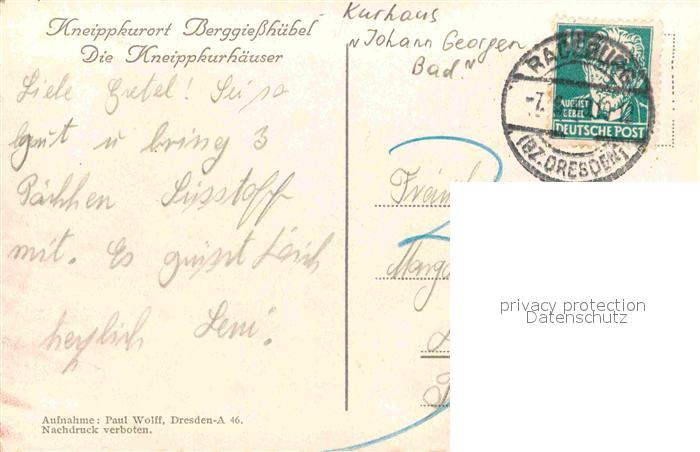 Kneippkurort Berggießhübel
Die Kneippkurhäuser
Kurhaus
"Johann Georgen
Bad."
Liebe Gretel! Sei so
gut u bring 3
Päckchen Süsstoff
mit. Es grüsst Dich
herzlich Leni.
RADEBURG
-7.
(BZ. DRESDEN)
AUGUST
BEBEL
DEUTSCHE POST
Marga
privacy protection
Datenschutz
Aufnahme: Paul Wolff, Dresden-A 46.
Nachdruck verboten.